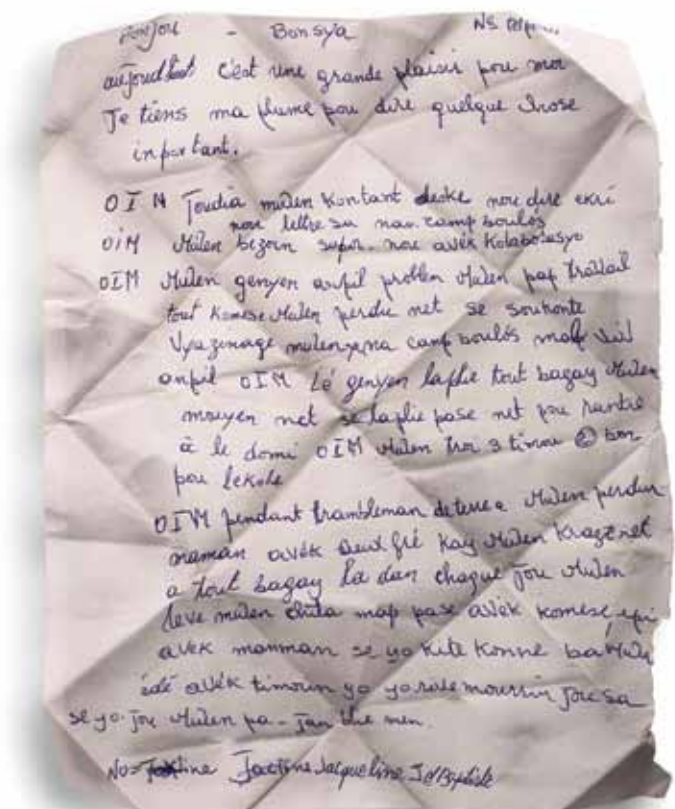 Bonjou - Bonsya NS
aujoudhui c'est une grande plaisir pou moi
Je tiens ma plume pou dire quelque chose
inportant.
OIM Joudia mwen kontant deske nou dire ekri
nou lettre sa nan camp boulos
OIM Mwen bezoin nou avèk kolaborasyo
OIM Mwen genyen anpil problem Mwen pap travail
tout komèse Mwen perdu net se souhonte
mwen na camp boulos map viv
anpil OIM Lé genyen laplie tout bagay Mwen
mouyen net se laplie pase net pou rantre
à le domi OIM Mwen 3 timou bon
pou lekole
OIM pendant trambleman de terre a Mwen perdu
maman avèk deux frè kay Mwen Kraze net
a tout bagay la dan chaque jou Mwen
leve mwen chita map pase avèk komèse epi
avèk manman se yo kite konne ba Mwen
èdè avèk timoun yo yo jou sa
se yo jou Mwen pa - jan
Jacqueline